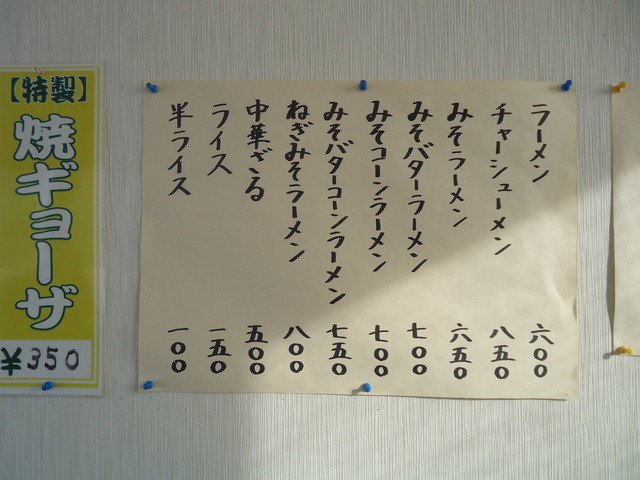 ラーメン 六〇〇
チャーシューメン 八五〇
みそラーメン 六五〇
みそバターラーメン 七〇〇
みそコーンラーメン 七〇〇
みそバターコーンラーメン 七五〇
ねぎみそラーメン 八〇〇
中華ざる 五〇〇
ライス 一五〇
半ライス 一〇〇
【特製】
焼ギョーザ
¥350